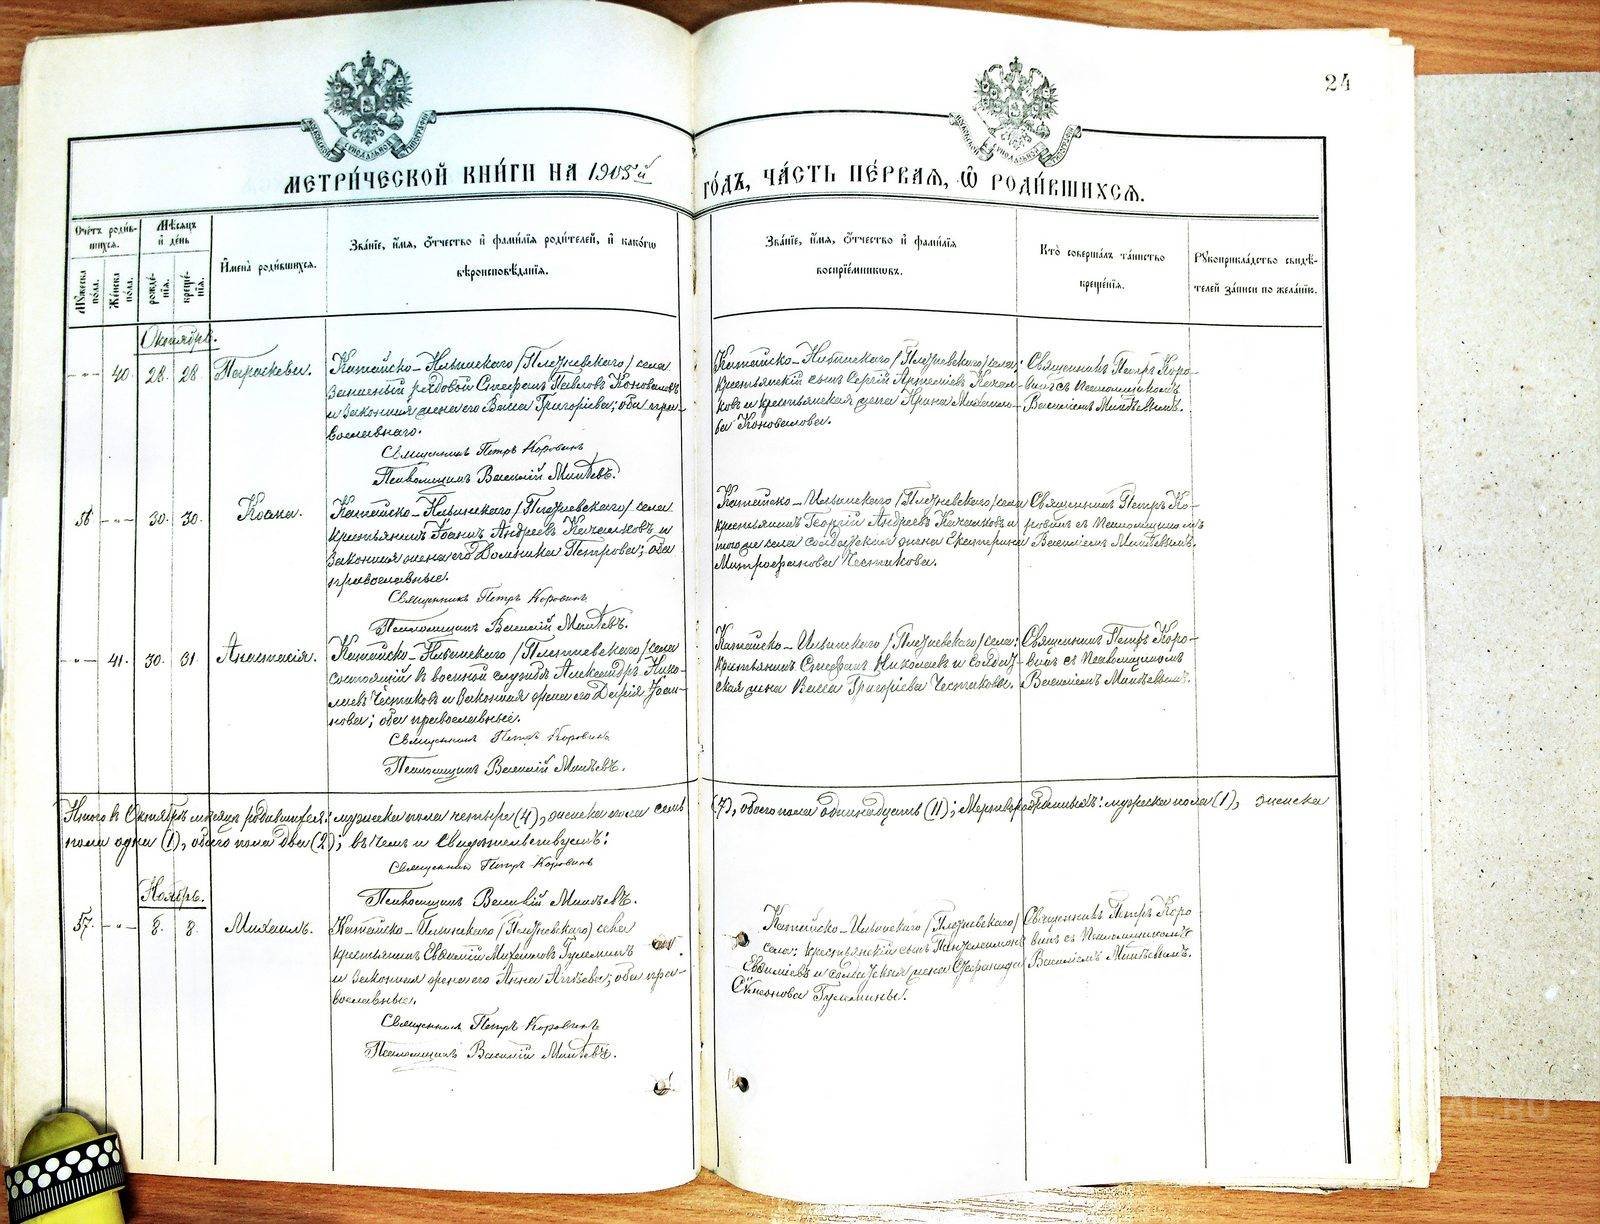 24
МЕТРИ́ЧЕСКОЙ КНИ́ГИ НА 1905й ГО́ДЪ, ЧА́СТЬ ПЕ́РВАѦ, Ѡ҆ РОДИ́ВШИХСѦ.
Сче́тъ роди́в-
шихсѧ.
Мѣ́сѧцъ
и҆ де́нь
Мꙋ́жеска по́ла.
Же́нска по́ла.
рожде́-
нїѧ.
креще́-
нїѧ.
И҆мена̀ роди́вшихсѧ.
Зва́нїе, и҆́мѧ, ѻ҆́тчество и҆ фами́лїѧ роди́телей, и҆ како́гѡ
вѣроисповѣ́данїѧ.
Зва́нїе, и҆́мѧ, ѻ҆́тчество и҆ фами́лїѧ
воспрїе́мникѡвъ.
Кто̀ соверша́лъ та́инство
креще́нїѧ.
Рꙋкоприкла́дство свидѣ́-
телей за́писи по жела́нїю.
Октябрь.
-"- 40. 28. 28. Параскева.
Катайско-Ильинскаго /Плотневскаго/ села
запасный рядовой Стефанъ Павловъ Коноваловъ
и законная жена его Васса Григорiева; оба пра-
вославнаго.
Священникъ Петръ Коровинъ
Псаломщикъ Василiй Матвѣевъ.
села:
крестьянскiй сынъ Сергiй Артемiевъ Качал-
ковъ и крестьянская жена Ирина Михайло-
ва Коновалова.
Священникъ Петръ Коро-
винъ съ Псаломщикомъ
Василiемъ Матвѣевымъ.
56 -"- 30. 30. Iоанна.
Катайско-Ильинскаго села
крестьянинъ Iоаннъ Андреевъ Качалковъ и
законная жена его Домника Петрова; оба
православные.
Священникъ Петръ Коровинъ
Псаломщикъ Василiй Матвѣевъ.
Катайско-Ильинскаго села
крестьянинъ Георгiй Андреевъ Качалковъ и
того же села солдатская жена Екатерина
Митрофанова Чистякова.
Священникъ Петръ Ко-
ровинъ съ Псаломщикомъ
Василiемъ Матвѣевымъ.
-"- 41. 30. 31. Анастасiя.
Катайско-Ильинскаго села
состоящiй въ военной службѣ Александръ Нико-
лаевъ Чистяковъ и законная жена его Дарiя Iоан-
нова; оба православные.
Священникъ Петръ Коровинъ
Псаломщикъ Василiй Матвѣевъ.
Катайско-Ильинскаго села:
крестьянинъ Стефанъ Николаевъ и солдат-
ская жена Васса Григорiева Чистяковы.
Священникъ Петръ Коро-
винъ съ Псаломщикомъ
Василiемъ Матвѣевымъ.
Итого въ Октябрѣ мѣсяцѣ родившихся: мужеска пола четыре (4), женска пола семь (7), обоего пола одинадцать (11); мертворожденныхъ: мужеска пола (1), женска
пола одна (1), обоего пола два (2); въ чемъ и свидѣтельствуемъ:
Священникъ Петръ Коровинъ
Псаломщикъ Василiй Матвѣевъ.
Ноябрь.
57. -"- 8. 8. Михаилъ.
Катайско-Ильинскаго села
крестьянинъ Евдокiмъ Михайловъ
и законная жена его Анна; оба пра-
вославные.
Священникъ Петръ Коровинъ
Псаломщикъ Василiй Матвѣевъ.
Катайско-Ильинскаго
села: крестьянскiй сынъ Пантелеимонъ
и солдатская жена
Священникъ Петръ Коро-
винъ съ Псаломщикомъ
Василiемъ Матвѣевымъ.